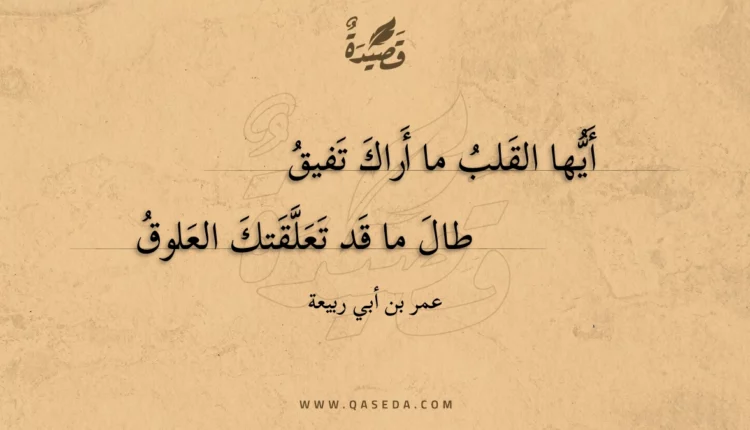 قَصِيْدَةٌ
أَيُّها القَلبُ ما أَراكَ تَفيقُ
طالَ ما قَد تَعَلَّقَتكَ العَلوقُ
عمر بن أبي ربيعة
WWW.QASEDA.COM